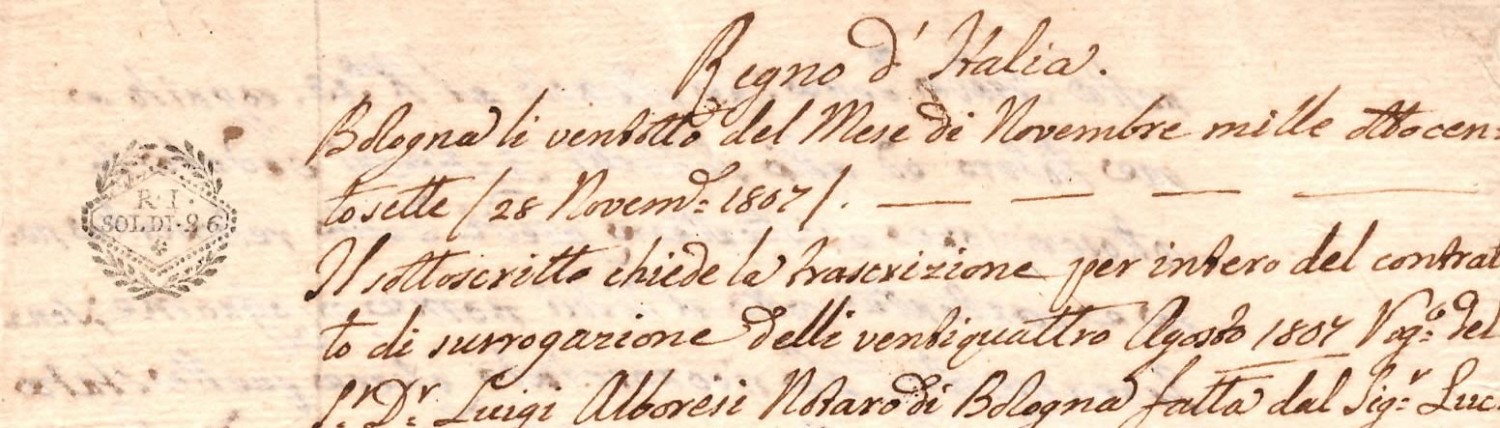 Regno d'Italia.
Bologna li ventotto del Mese di Novembre mille ottocen=
tosette / 28 Novem.e 1807 /. — — — —
R. I.
SOLDI. 26
Il sottoscritto chiede la trascrizione per intero del contrat
to di surrogazione delli ventiquattro Agosto 1807 Rog.o del
S.r D.r Luigi Alboresi Notaro di Bologna fatta dal Sig.r Luc.